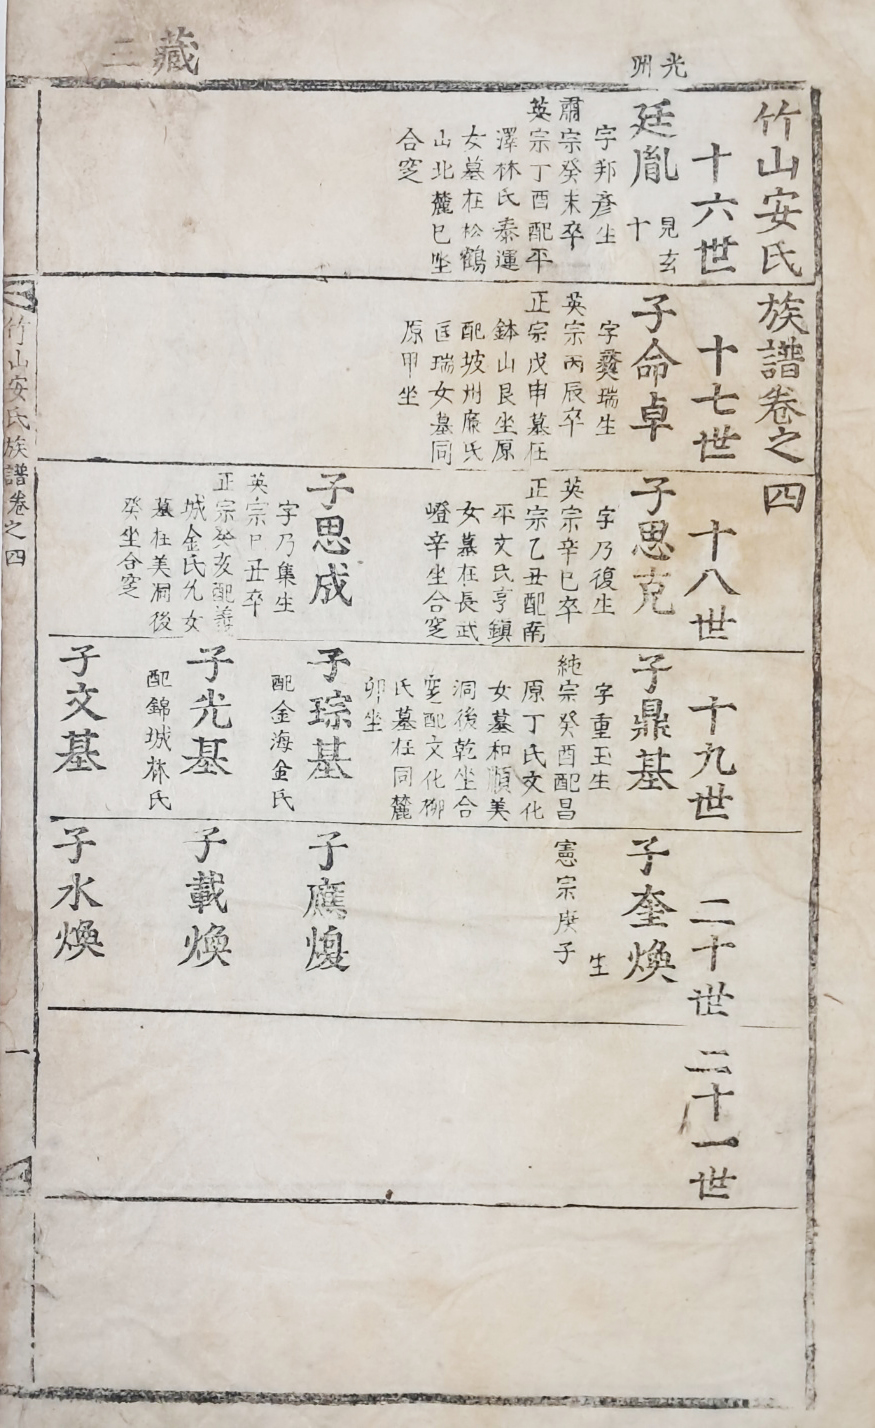 藏三
光州
竹山安氏族譜卷之四
十六世
廷胤
見玄
十
字邦彦生
肅宗癸未卒
英宗丁酉配平
澤林氏泰運
女墓在松鶴
山北麓巳坐
合窆
十七世
子命卓
字爕瑞生
英宗丙辰卒
正宗戊申墓在
鉢山艮坐原
配坡州廉氏
匡瑞女墓同
原甲坐
十八世
子思克
字乃復生
英宗辛巳卒
正宗乙丑配南
平文氏亨鎭
女墓在長武
嶝辛坐合窆
子思成
字乃集生
英宗丑卒
正宗癸亥配善
城金氏允女
墓在美洞後
癸坐合窆
十九世
子鼎基
字重玉生
純宗癸酉配昌
原丁氏文化
女墓和順美
洞後乾坐合
窆配文化柳
氏墓在同麓
卯坐
子琮基
配金海金氏
子光基
配錦城林氏
子文基
二十世
子奎煥
生
憲宗庚子
子應煥
子載煥
子水煥
二十一世
竹山安氏族譜卷之四
一